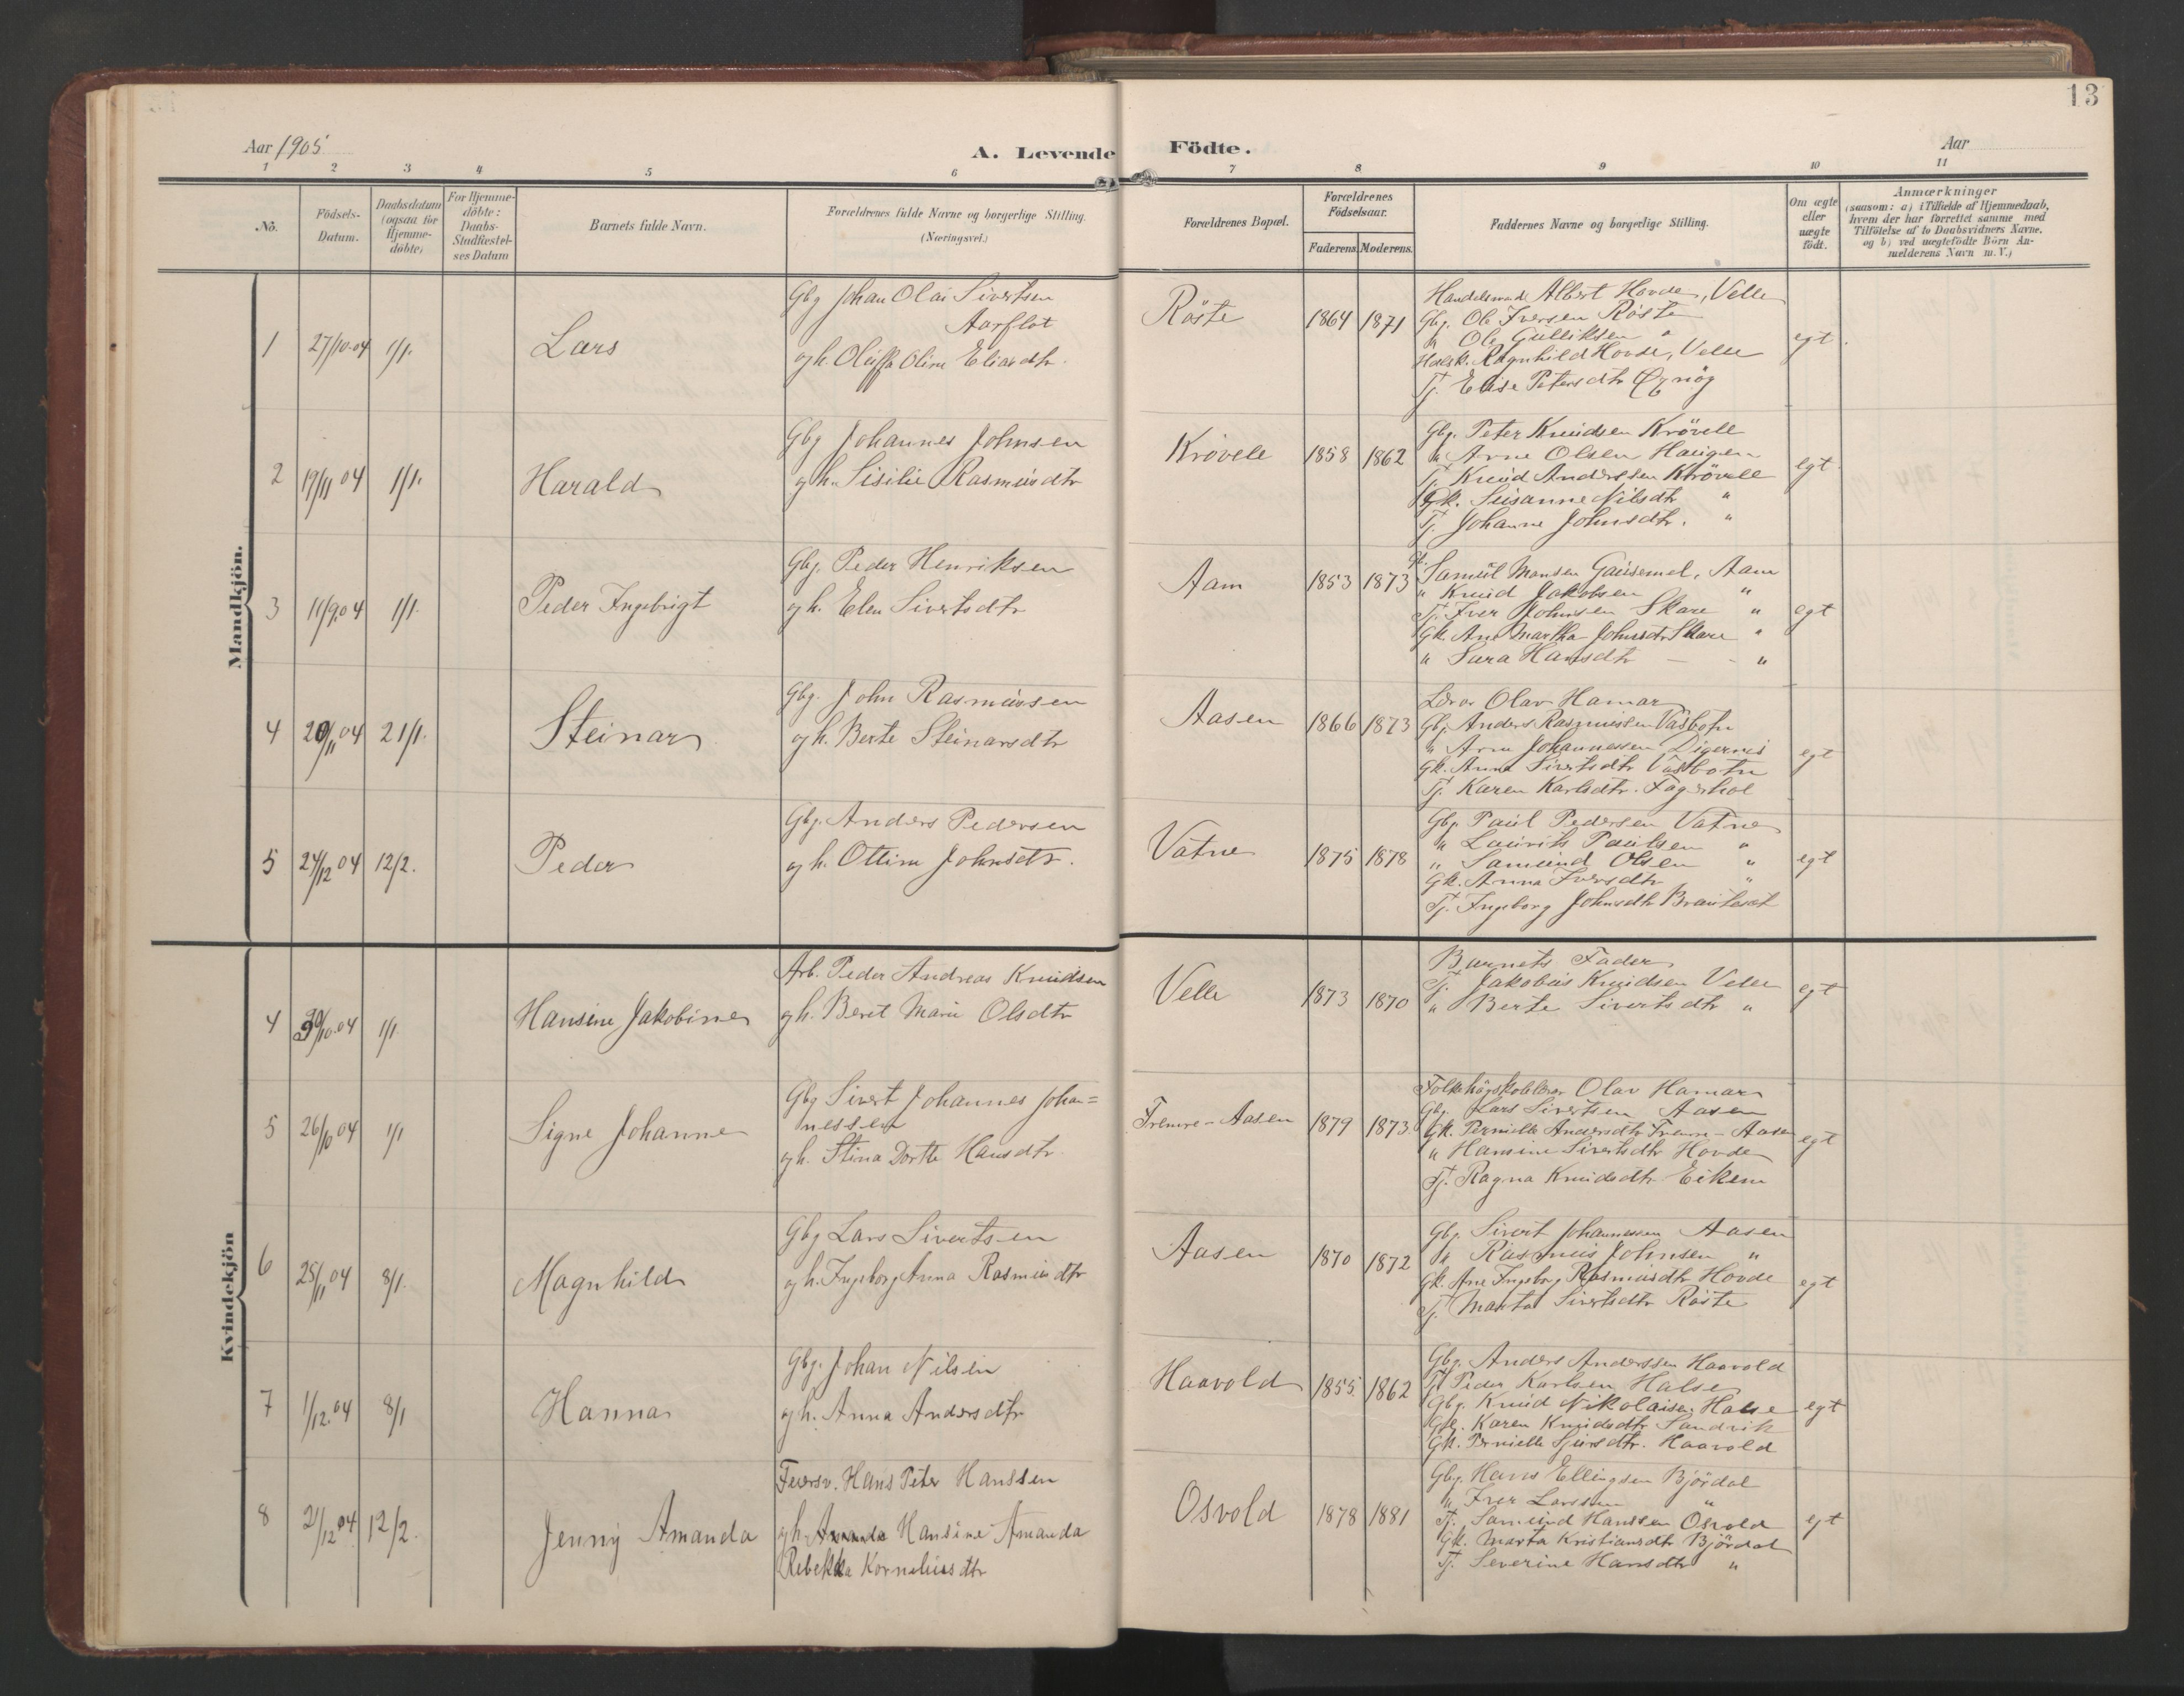 13
Aar 1905
A. Levende Födte.
Aar
1 2 3 4 5 6 7 8 9 10 11
No.
Födsels-Datum.
Daabsdatum (ogsaa för Hjemme-döbte)
For Hjemme-döbte: Daabs-Stadfæstel-ses Datum
Barnets fulde Navn.
Forældrenes fulde Navne og borgerlige Stilling. (Næringsvei.)
Forældrenes Bopæl.
Forældrenes Födselsaar.
Faderens. Moderens.
Faddernes Navne og borgerlige Stilling.
Om ægte eller uægte födt.
Anmærkninger
(saasom: a) i Tilfælde af Hjemmedaab, hvem der har forrettet samme med Tilföielse af to Daabsvidners Navne, og b) ved uægtefödte Börn An-melderens Navn m.V.)
Mandkjön.
1 27/10.04 1/1. Lars
Gbg Johan Olai Sivertsen
Aarflot
og h. Oluffa Oline Eliasdtr.
Röste 1864 1871
Handelsmand Albert Hovde, Velle
Gbg. Ole Iversen Röste
" Ole Gulliksen "
Ragnhild Hovde, Velle
Tj. Elise Petersdtr
egt
2 19/11 04 1/1. Harald
Gbg Johannes Johnsen
og h. Sisilie Rasmusdtr
Krövele 1858 1862
Gbg. Peter Knudsen Krövele
" Arne Olsen Haugen
Tj. Knud Anderssen Krövele
Gk. Susanne Nilsdtr "
Tj. Johanne Johnsdtr. "
egt
3 11/9.04 1/1. Peder Ingebrigt
Gbg. Peder Henriksen
og h. Elen Sivertsdtr
Aam 1853 1873
Samuel Mansen Gausemel, Aam
" Knud Jakobsen "
Tj. Iver Johnsen Skare "
Gk. Ane Martha Johnsdtr Skare "
" Sara Hansdtr — "
egt
4 20/11 04 21/1. Steinar
Gbg. John Rasmussen
og h. Berte Steinarsdtr
Aasen 1866 1873
Lærer Olav Hamar
Gbg Anders Rasmussen Vasbotn
" Arne Johannessen Digernes
Gk. Anna Sivertsdtr Vasbotn
Tj. Karen Karlsdtr. Fagerhol
egt
5 24/12 04 12/2. Peder
Gbg. Anders Pedersen
og h. Ottine Johnsdtr.
Vatne 1875 1878
Gbg Paul Pedersen Vatne
" Laurits Paulsen "
" Samund Olsen "
Gk. Anna Iversdtr "
Tj. Ingeborg Johnsdtr Brauteset
egt
Kvindekjön
4 30/10.04 1/1 Hansine Jakobine
Arb. Peder Andreas Knudsen
og h. Berit Marie Olsdtr
Velle 1873 1870
Barnets Fader
Tj. Jakobus Knudsen Velle
" Berte Sivertsdtr "
egt
5 26/10 04 1/1 Signe Johanne
Gbg Sivert Johannes Johan=
nessen
og h. Stina Dorthe Hansdtr
Fremre-Aasen 1879 1873.
Folkehögskolelærer Olav Hamar
Gbg. Lars Sivertsen Aasen
Gk. Pernille Andersdtr Fremre-Aasen
" Hansine Sivertsdtr Hovde
Tj. Ragna Knudsdtr Eikrem
egt
6 25/11 04 8/1. Magnhild
Gbg Lars Sivertsen
og h. Ingeborg Anna Rasmusdtr
Aasen 1870 1872
Gbg. Sivert Johannessen Aasen
" Rasmus Johnsen "
Gk. Ane Ingeborg Rasmusdtr Hovde
Tj. Marta Sivertsdtr Röste
egt
7 1/12.04 8/1 Hanna
Gbg. Johan Nilsen
og h. Anna Andersdtr
Haavold 1855 1862
Gbg. Anders Anderssen Haavold
Tj Peder Karlsen Halse
Gbg. Knud Nikolaisen Halse
Gk. Karen Knudsdtr Sandvik
Gk. Pernielle Sjursdtr. Haavold
egt
8 2/12 04 12/2. Jenny Amanda
Feiersv. Hans Peter Hanssen
og h. Hansine Amanda
Rebekka Korneliusdtr
Osvold 1878 1881
Gbg. Hans Ellingsen Björdal
" Iver Larssen "
Tj. Samund Hanssen Osvold
Gk. Marta Kristiansdtr Björdal
Tj. Severine Hansdtr "
egt